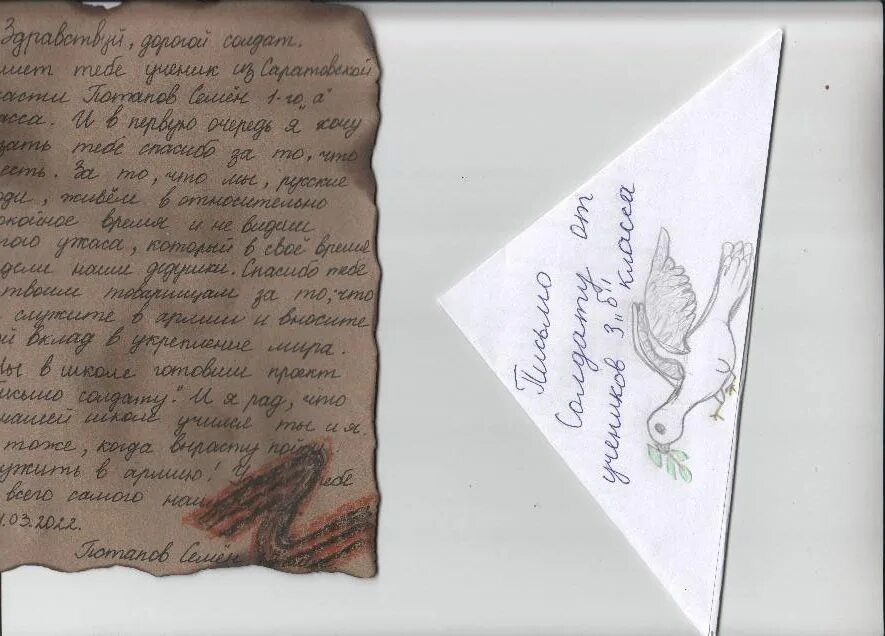 Здравствуй, дорогой солдат.
шет тебе ученик из Саратовской
асти Потапов Семён 1-го "а"
асса. И в первую очередь я хочу
зать тебе спасибо за то, что
есть. За то, что мы, русские
юди, живём в относительно
окойное время и не видим
того ужаса, который в своё время
дели наши дедушки. Спасибо тебе
твоим товарищам за то, что
служите в армии и вносите
ой вклад в укрепление мира.
Мы в школе готовим проект
Письмо солдату." И я рад, что
нашей школе учился ты и я.
тоже, когда вырасту пойду
ужить в армию! тебе
всего самого наи
1.03.2022.
Потапов Семён
Письмо
Солдату от
учеников 3 "б" класса